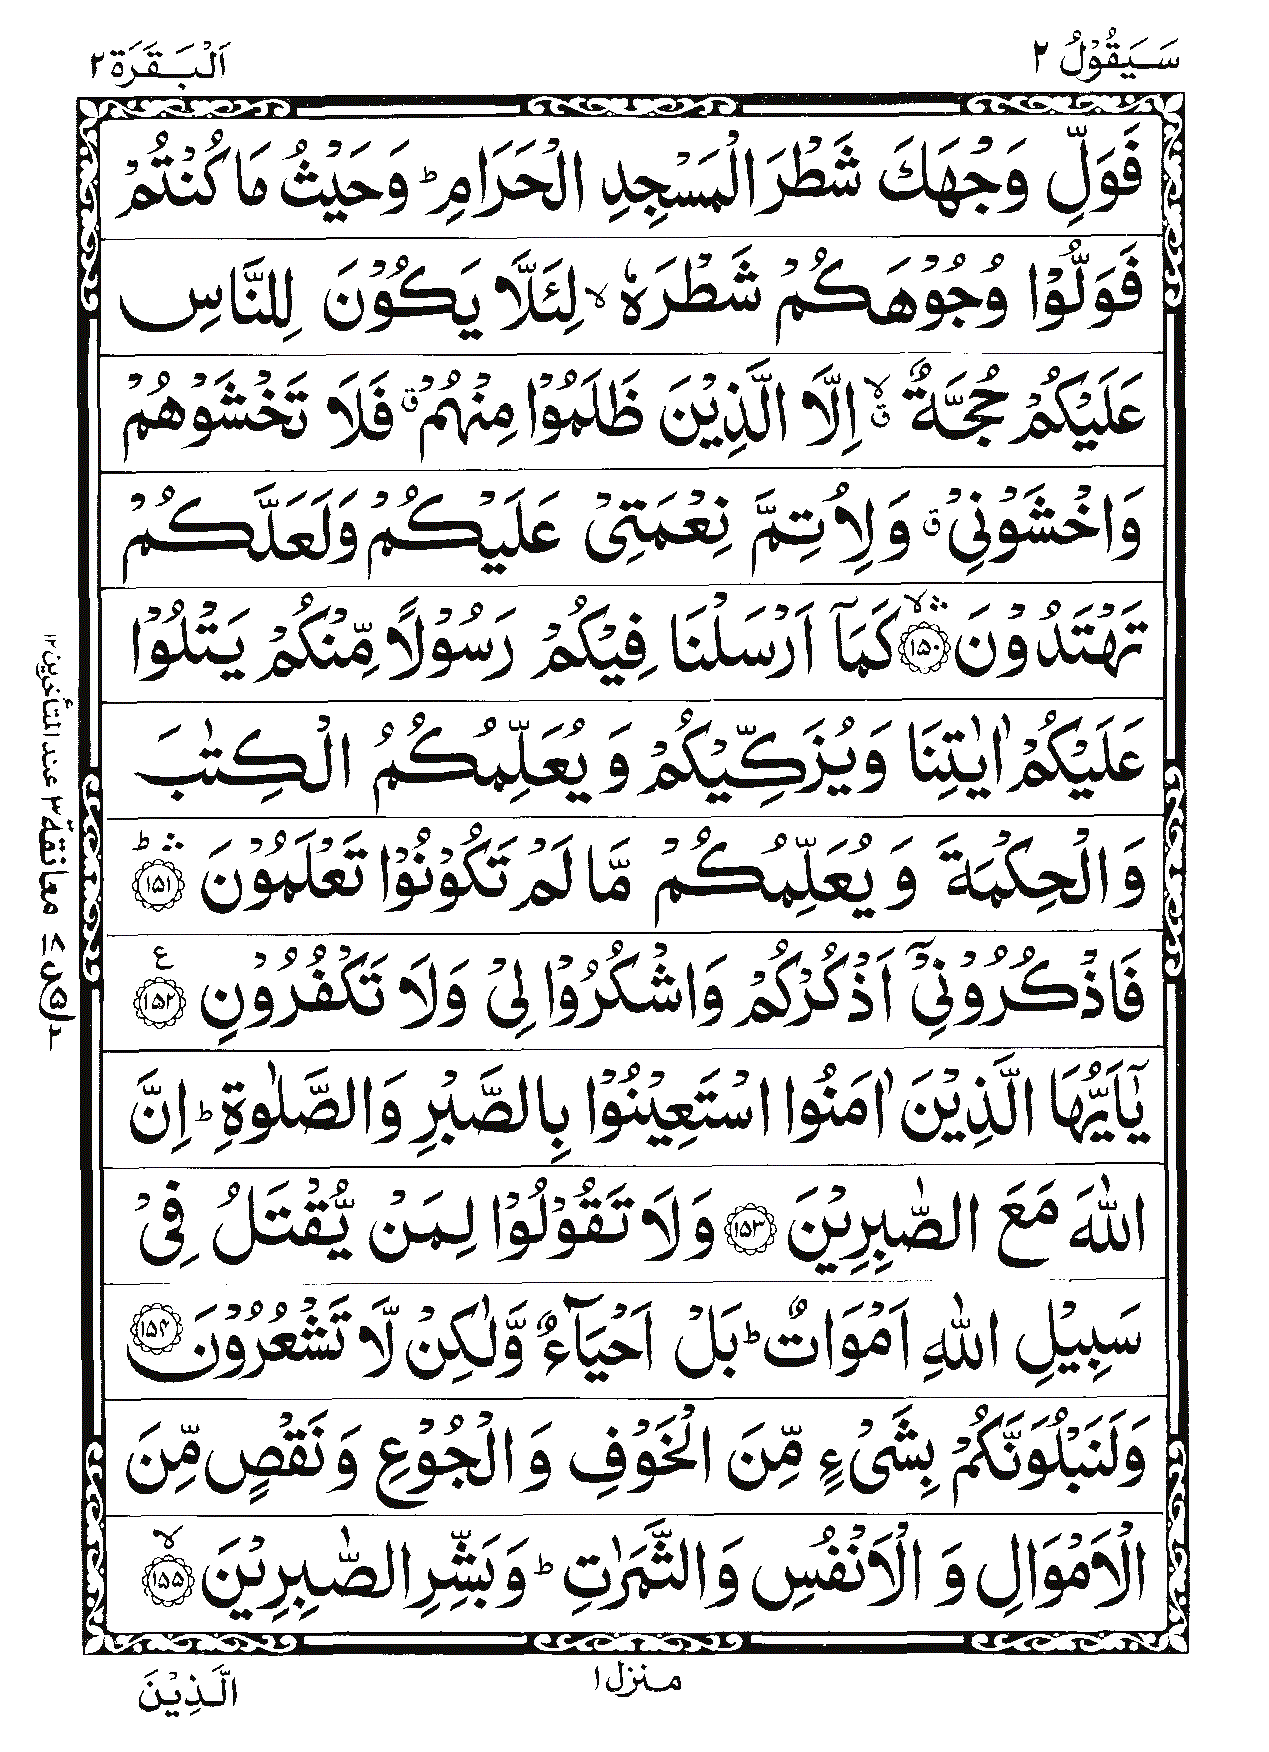 سَيَقُوْلُ ٢
اَلْبَقَرَة ٢
فَوَلِّ وَجْهَكَ شَطْرَ الْمَسْجِدِ الْحَرَامِ ؕ وَحَيْثُ مَا كُنْتُمْ
فَوَلُّوْا وُجُوْهَكُمْ شَطْرَهٗ ۙ لِئَلَّا يَكُوْنَ لِلنَّاسِ
عَلَيْكُمْ حُجَّةٌ ۙۗ اِلَّا الَّذِيْنَ ظَلَمُوْا مِنْهُمْ ۗ فَلَا تَخْشَوْهُمْ
وَاخْشَوْنِيْ ۗ وَلِاُتِمَّ نِعْمَتِيْ عَلَيْكُمْ وَلَعَلَّكُمْ
تَهْتَدُوْنَ ۛۙ ﴿١٥٠﴾ كَمَآ اَرْسَلْنَا فِيْكُمْ رَسُوْلًا مِّنْكُمْ يَتْلُوْا
عَلَيْكُمْ اٰيٰتِنَا وَيُزَكِّيْكُمْ وَيُعَلِّمُكُمُ الْكِتٰبَ
وَالْحِكْمَةَ وَيُعَلِّمُكُمْ مَّا لَمْ تَكُوْنُوْا تَعْلَمُوْنَ ۛؕ ﴿١٥١﴾
فَاذْكُرُوْنِيْٓ اَذْكُرْكُمْ وَاشْكُرُوْا لِيْ وَلَا تَكْفُرُوْنِ ع ﴿١٥٢﴾
يٰٓاَيُّهَا الَّذِيْنَ اٰمَنُوا اسْتَعِيْنُوْا بِالصَّبْرِ وَالصَّلٰوةِ ؕ اِنَّ
اللّٰهَ مَعَ الصّٰبِرِيْنَ ﴿١٥٣﴾ وَلَا تَقُوْلُوْا لِمَنْ يُّقْتَلُ فِيْ
سَبِيْلِ اللّٰهِ اَمْوَاتٌ ؕ بَلْ اَحْيَآءٌ وَّلٰكِنْ لَّا تَشْعُرُوْنَ ﴿١٥٤﴾
وَلَنَبْلُوَنَّكُمْ بِشَيْءٍ مِّنَ الْخَوْفِ وَالْجُوْعِ وَنَقْصٍ مِّنَ
الْاَمْوَالِ وَالْاَنْفُسِ وَالثَّمَرٰتِ ؕ وَبَشِّرِ الصّٰبِرِيْنَ ۙ ﴿١٥٥﴾
معانقة ٣ عند المتأخرين ١٢
منزل ١
الَّذِيْنَ